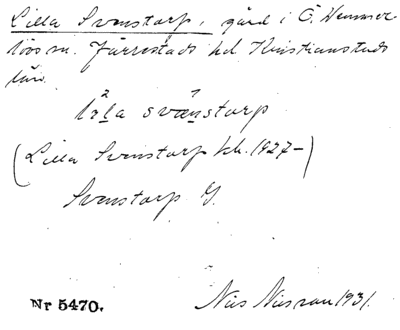 Lilla Svenstorp, gård i Ö. Hemmes-
lövs sn. Järrestads hd. Kristianstads
län.
svænstorp
(Lilla Svenstorp kh. 1927-)
Svenstorp G.
Nr 5470.
Nils Nilsson 1931.